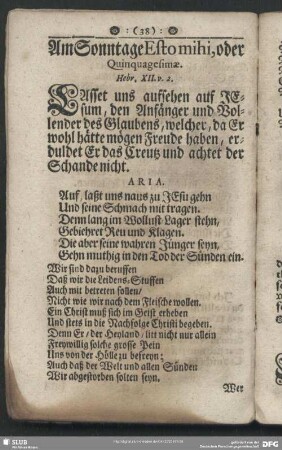 : (38) :
Am Sonntage Esto mihi, oder
Quinquagesimæ.
Hebr. XII. v. 2.
LAsset uns aufsehen auf JE-
sum, den Anfänger und Vol-
lender des Glaubens, welcher, da Er
wohl hätte mögen Freude haben, er-
duldet Er das Creutz und achtet der
Schande nicht.
ARIA.
Auf, laßt uns naus zu JEsu gehn
Und seine Schmach mit tragen.
Denn lang im Wollust-Lager stehn,
Gebiehret Reu und Klagen.
Die aber seine wahren Jünger seyn,
Gehn muthig in den Tod der Sünden ein.
Wir sind dazu beruffen
Daß wir die Leidens-Stuffen
Auch mit betreten sollen/
Nicht wie wir nach dem Fleische wollen.
Ein Christ muß sich im Geist erheben
Und stets in die Nachfolge Christi begeben.
Denn Er/ der Heyland/ litt nicht nur allein
Freywillig solche grosse Pein
Uns von der Hölle zu befreyn;
Auch daß der Welt und allen Sünden
Wir abgestorben solten seyn.
Wer
SLUB
DFG